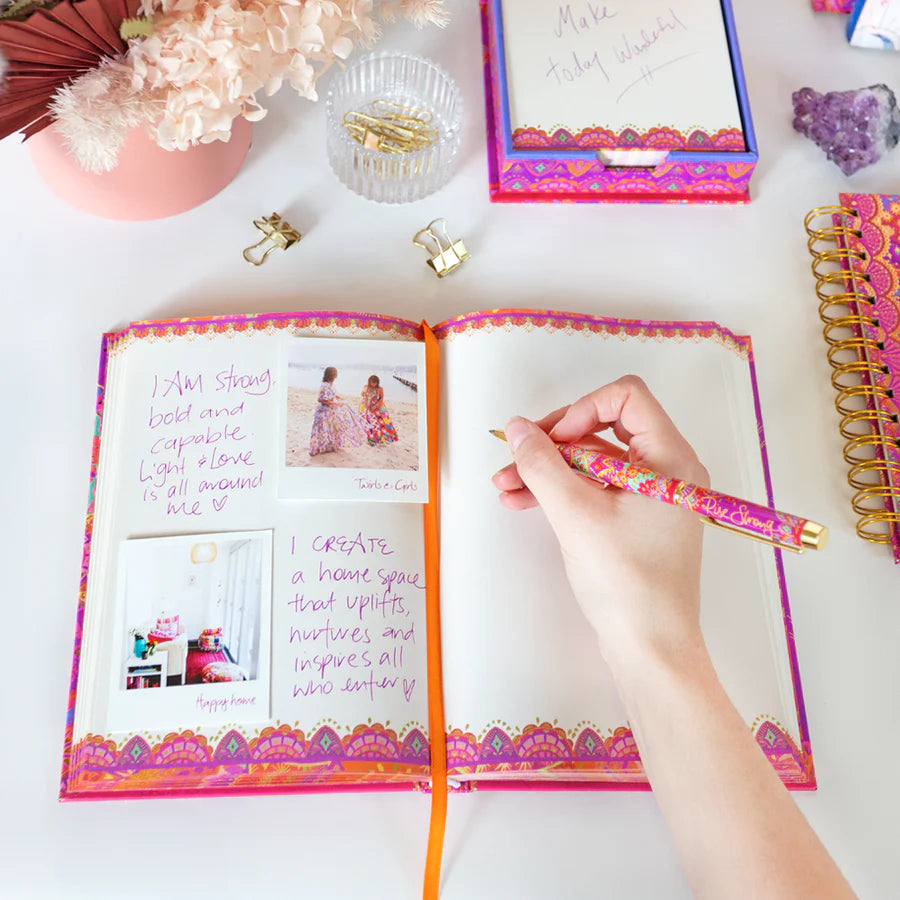 Make
today Wonderful
I AM Strong,
bold and
capable.
Light & Love
is all around
me ♡
Twirls & Girls
I CREATE
a home space
that uplifts,
nurtures and
inspires all
who enter ♡
Happy home
Rise Strong